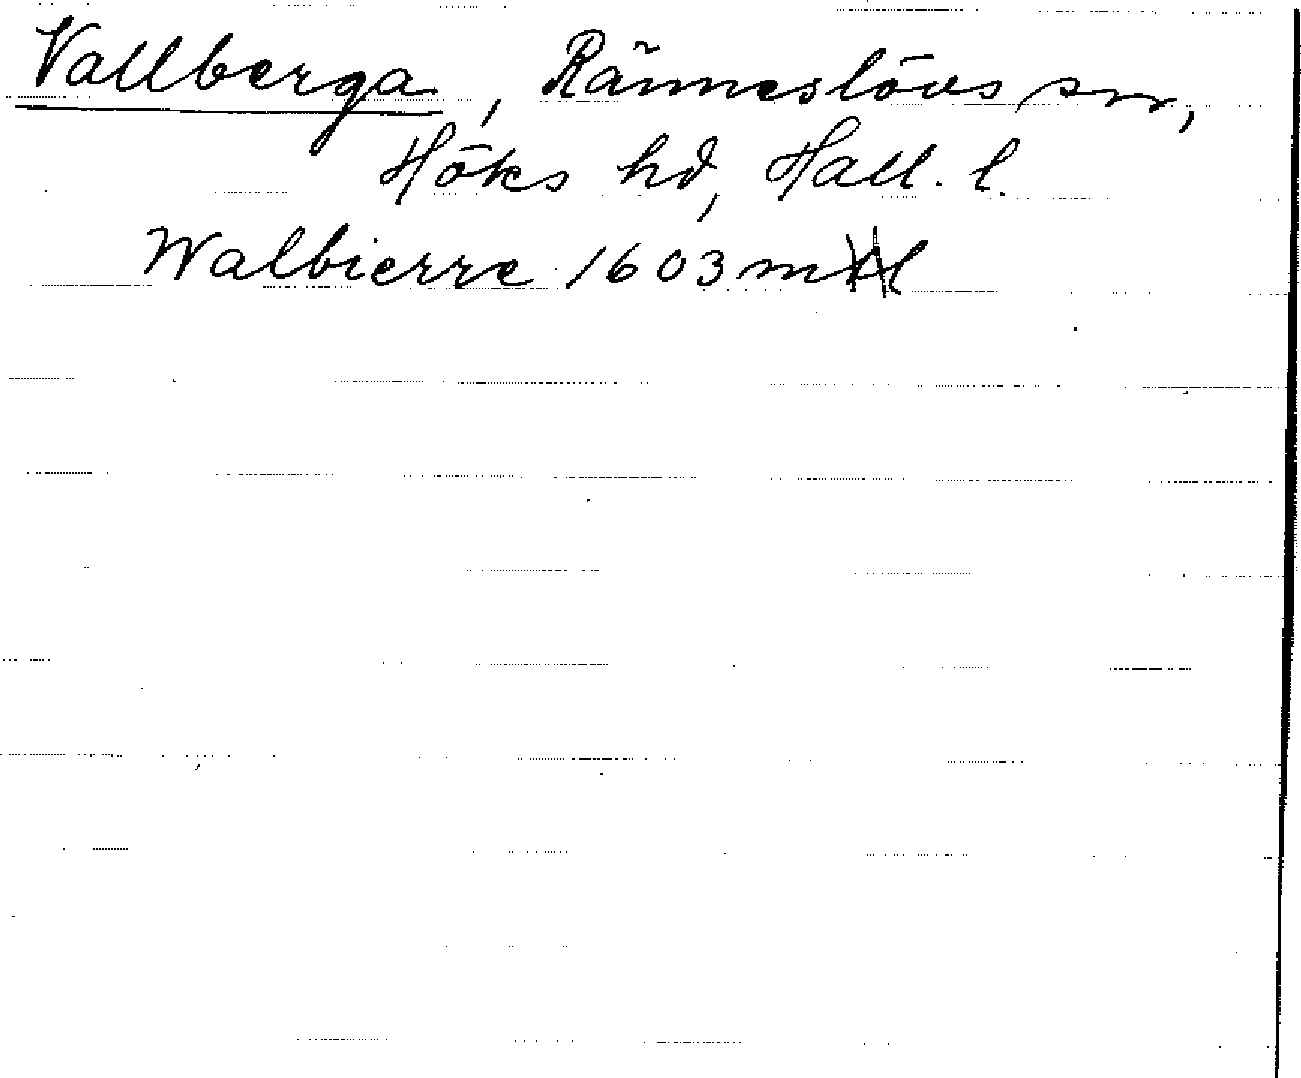 Vallberga, Ränneslövs sn,
Höks hd, Hall. l.
Walbierre 1603